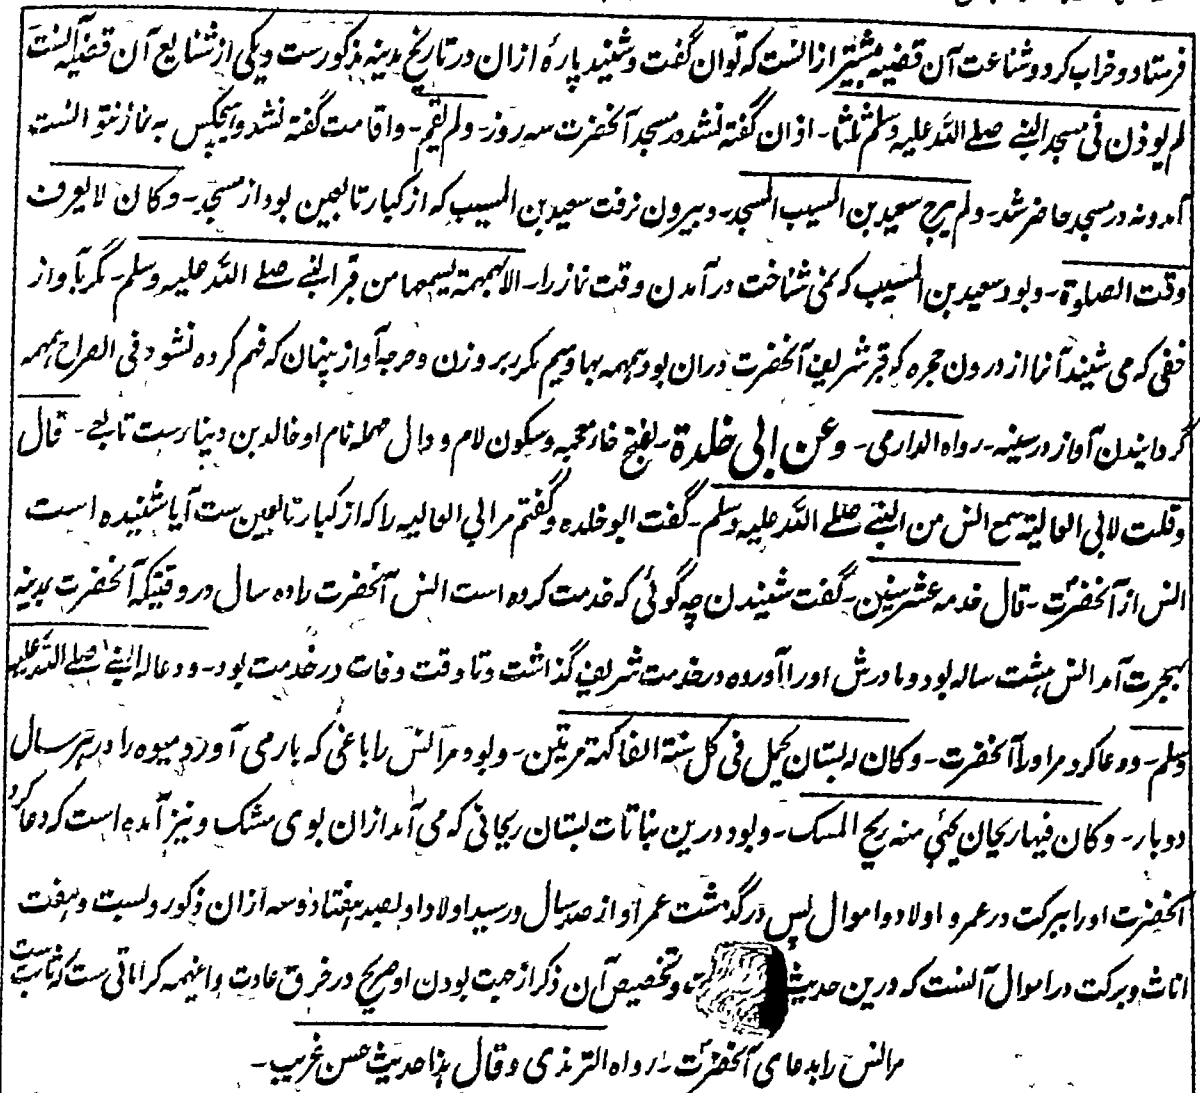 فرستاد و خراب کرد و شناعت آن قضیه بیشتر از انست که توان گفت و شنید پارهٔ ازان در تاریخ مدینه مذکورست و یکی از شنایع آن قضیه آنست
لم یوذن فی مسجد النبے صلے اللہ علیہ وسلم ثلثا۔ اذان گفته نشد در مسجد آنحضرت سه روز۔ ولم یقم۔ و اقامت گفته نشد و هیچکس به نماز نتوانست
آمد و نه در مسجد حاضر شد۔ ولم یبرح سعید بن المسیب المسجد۔ و بیرون نرفت سعید بن المسیب که از کبار تابعین بود از مسجد۔ وکان لا یعرف
وقت الصلوۃ۔ و بود سعید بن المسیب که نمی شناخت در آمدن وقت نماز را۔ الا بهمهمة یسمعها من قبر النبے صلے اللہ علیہ وسلم۔ مگر بآواز
خفی که می شنید آنرا از درون حجره که قبر شریف آنحضرت دران بود و همهمه بها و میم مکرر بر وزن دحرجه آواز پنهان که فهم کرده نشود فی الصراح همهمه
گردانیدن آواز در سینه۔ رواه الدارمی۔ وعن ابی خلدة۔ بفتح خاء معجمه و سکون لام و دال مهمله نام او خالد بن دینارست تابعی۔ قال
قلت لابی العالیة سمع انس من النبے صلے اللہ علیہ وسلم۔ گفت ابو خلده و گفتم مر ابی العالیه را که از کبار تابعین ست آیا شنیده است
انس از آنحضرت۔ قال خدمه عشر سنین۔ گفت شنیدن چه گوئی که خدمت کرده است انس آنحضرت را ده سال در وقتیکه آنحضرت بمدینه
بهجرت آمد انس هشت ساله بود و مادرش او را آورده در خدمت شریف گذاشت و تا وقت وفات در خدمت بود۔ ودعا له النبے صلے اللہ علیہ
وسلم۔ و دعا کرد مر او را آنحضرت۔ وکان له بستان یحمل فی کل سنة الفاکهة مرتین۔ و بود مر انس را باغی که بار می آورد میوه را در هر سال
دو بار۔ وکان فیها ریحان یجئ منه ریح المسک۔ و بود درین نباتات بستان ریحانی که می آمد ازان بوی مشک و نیز آمده است که دعا کرد
آنحضرت او را ببرکت در عمر و اولاد و اموال پس در گذشت عمر او از صد سال و رسید اولاد او بصد هفتاد و سه ازان ذکور و بست و هفت
اناث و برکت در اموال آنست که درین حدیث و تخصیص آن ذکر از جهت بودن او صریح در خرق عادت و اینهمه کراماتی ست که ثابت ست
مر انس را بدعای آنحضرت۔ رواه الترمذی وقال هذا حدیث حسن غریب۔